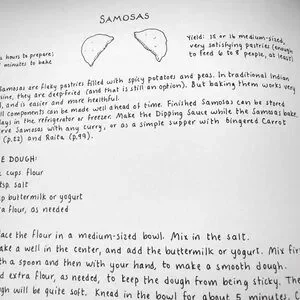 SAMOSAS
hours to prepare;
minutes to bake
Yield: 15 or 16 medium-sized,
very satisfying pastries (enough
to feed 6 to 8 people, at least)
Samosas are flaky pastries filled with spicy potatoes and peas. In traditional Indian
, they are deep-fried (and that is still an option). But baking them works very
, and is easier and more healthful.
ll components can be made well ahead of time. Finished Samosas can be stored
days in the refrigerator or freezer. Make the Dipping Sauce while the Samosas bake.
rve Samosas with any curry, or as a simple supper with Gingered Carrot
(p.22) and Raita (p.99).
E DOUGH:
cups flour
tsp. salt
p buttermilk or yogurt
ra flour, as needed
lace the flour in a medium-sized bowl. Mix in the salt.
ake a well in the center, and add the buttermilk or yogurt. Mix first
th a spoon and then with your hand, to make a smooth dough.
d extra flour, as needed, to keep the dough from being sticky. The
ugh will be quite soft. Knead in the bowl for about 5 minutes.